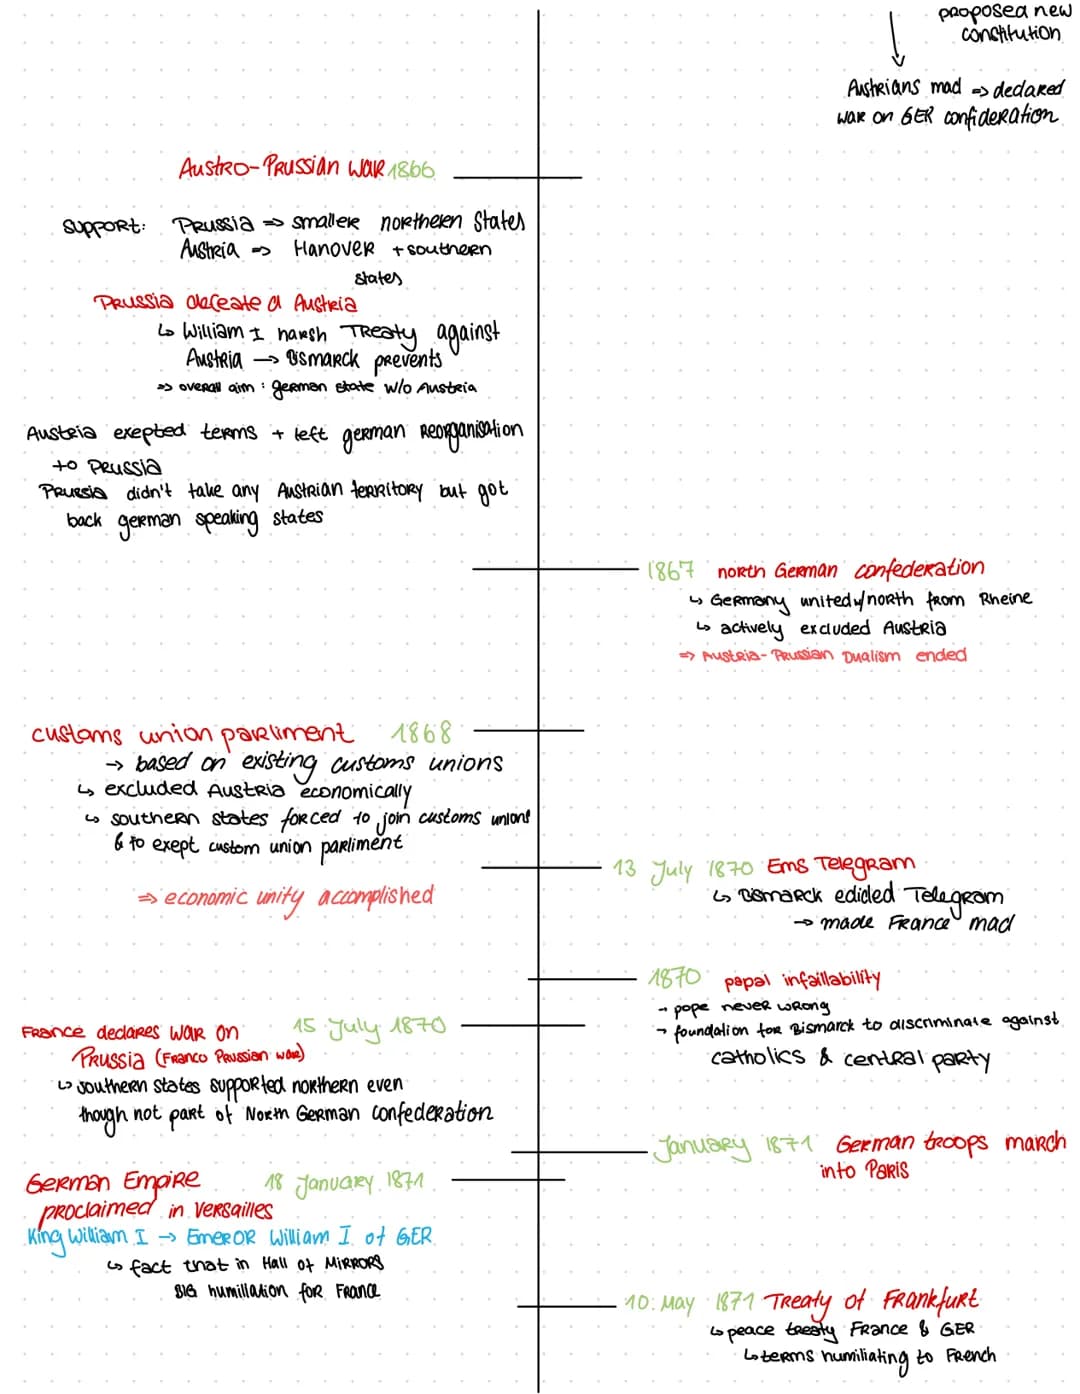 proposed new
constitution
Austrians mad => declared
war on GER confideration
Austro-Prussian war 1866
support: Prussia => smaller northern states
Austria => Hanover + southern
states
Prussia defeated Austria
↳ William I harsh Treaty against
Austria → Bismarck prevents
=> overall aim: german state w/o Austria
Austria exepted terms + left german reorganisation
to Prussia
Prussia didn't take any Austrian territory but got
back german speaking states
1867 north German confederation
↳ Germany united w/ north from Rheine
↳ actively excluded Austria
=> Austria-Prussian Dualism ended
customs union parliment 1868
→ based on existing customs unions
↳ excluded Austria economically
↳ southern states forced to join customs unions
& to exept custom union parliment
=> economic unity accomplished
13 July 1870 Ems Telegram
↳ Bismarck edided Telegram
→ made France mad
1870 papal infaillability
→ pope never wrong
→ foundation for Bismarck to discriminate against
catholics & central party
France declares war on 15 July 1870
Prussia (Franco Prussian war)
↳ southern states supported northern even
though not part of North German confederation
January 1871 German troops march
into Paris
German Empire 18 January 1871
proclaimed in Versailles
King William I → EmerOR William I of GER
↳ fact that in Hall of Mirrors
BIG humillation for France
10. May 1871 Treaty of Frankfurt
↳ peace treaty France & GER
↳ terms humiliating to French